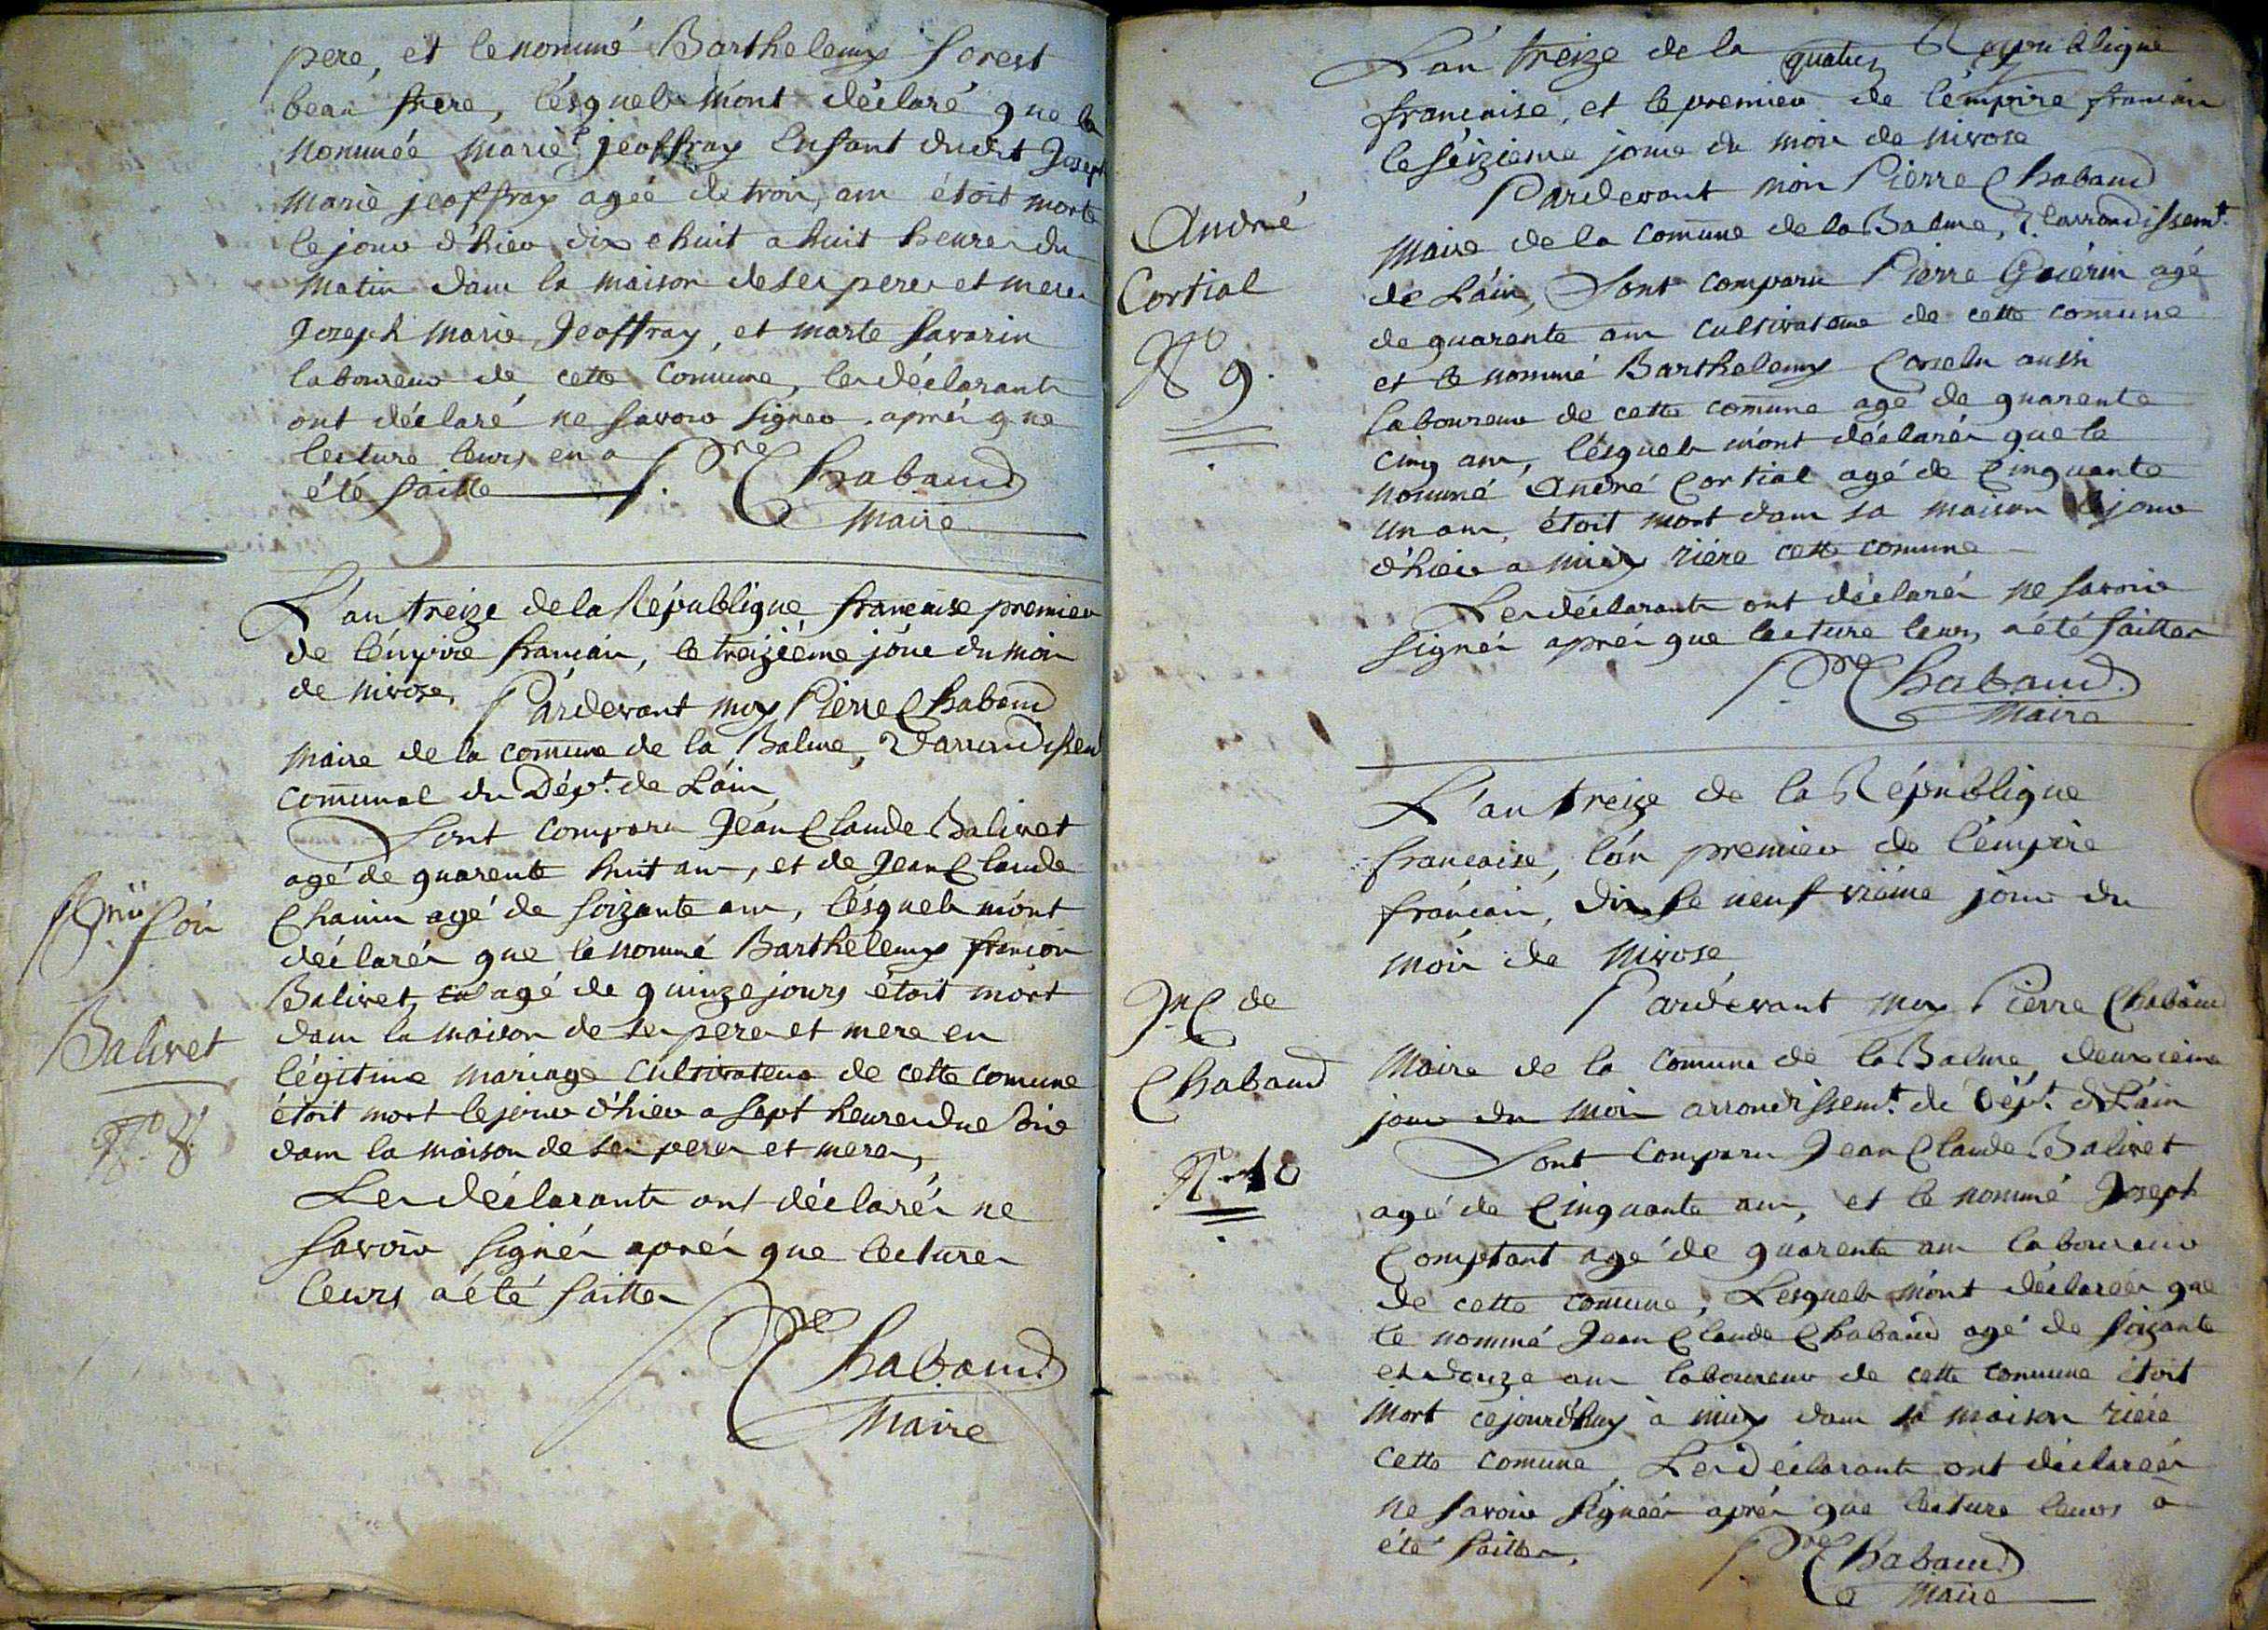 pere, et le nommé Barthelemy forest
beau frere, lésquels m'ont déclaré que la
nommée marie jeoffray Enfant dudit Joseph
marie jeoffray agée de trois ans étoit morte
le jour d'hier dix e huit a huit heures du
matin dans la maison de ses peres et meres
Joseph marie Jeoffray, et marte savarin
laboureur de cette comune, les déclarants
ont déclaré ne savoir signer aprés que
lecture leurs en a
été faitte Pre Chabaud
Maire
L'an treize de la République francaise premier
de l'émpire francais, le treizième jour du mois
de nivose, Pardevant moy Pierre Chabaud
maire de la comune de la Balme,
comunal du Dépt. de L'ain
Sont comparu Jean Claude Balivet
agé de quarente huit ans, et de Jean Claude
agé de soizante ans, lésquels m'ont
déclarés que le nommé Barthelemy
Balivet, agé de quinze jours étoit mort
dans la maison de ses peres et mere en
légitime mariage cultivateur de cette comune
étoit mort le jour d'hier a sept heures du soir
dans la maison de ses peres et meres,
Les déclarants ont déclarés ne
savoir signér aprés que lectures
leurs a été faittes
Pre Chabaud
Maire
Balivet
No 8.
L'an treize de la République
francaise, et le premier de l'émpire francais
le séizieme jour du mois de nivose
Pardevant moi Pierre Chabaud
André
Maire de la comune de la Balme, 2. l'arrondissemt.
Cortial
de L'ain, Sont comparu Pierre Guérin agé
No 9.
de quarente ans cultivateur de cette comune
et le nommé Barthelemy aussi
laboureur de cette comune agé de quarente
cinq ans, lésquels m'ont déclarés que le
nommé André Cortial agé de Cinquante
un ans, étoit mort dans sa maison le jour
d'hier a midy riére cette comune
Les déclarants ont déclarés ne savoir
signér aprés que lecture leurs a été faittes
Pre Chabaud
Maire
L'an treize de la République
francaise, l'an premier de l'émpire
francais, dix e neuf viéme jour du
mois de Nivose
Pardevant moy Pierre Chabaud
Jn C de
Chabaud
No 10
Maire de la comune de la Balme, deuxieme
jour du mois arrondissemt. de Dépt. de L'ain
Sont comparu Jean Claude Balivet
agé de Cinquante ans, et le nommé Joseph
agé de quarente ans laboureur
de cette comune, Lesquels m'ont déclareés que
le nommé Jean Claude Chabaud agé de soizante
et douze ans laboureur de cette comune étoit
mort cejourd'huy a midy dans sa maison riére
cette comune, Les déclarants ont déclareés
ne savoir signeér aprés que lecture leurs a
été faittes.
Pre Chabaud
Maire